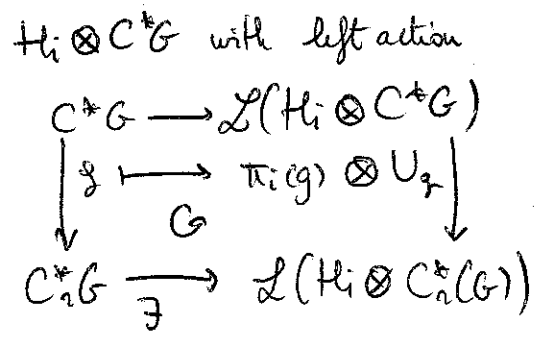 Hi ⊗ C*G with left action
C*G → ℒ(Hi ⊗ C*G)
g ↦ πi(g) ⊗ Ug
G
C*rG → ℒ(Hi ⊗ C*r(G))
∃